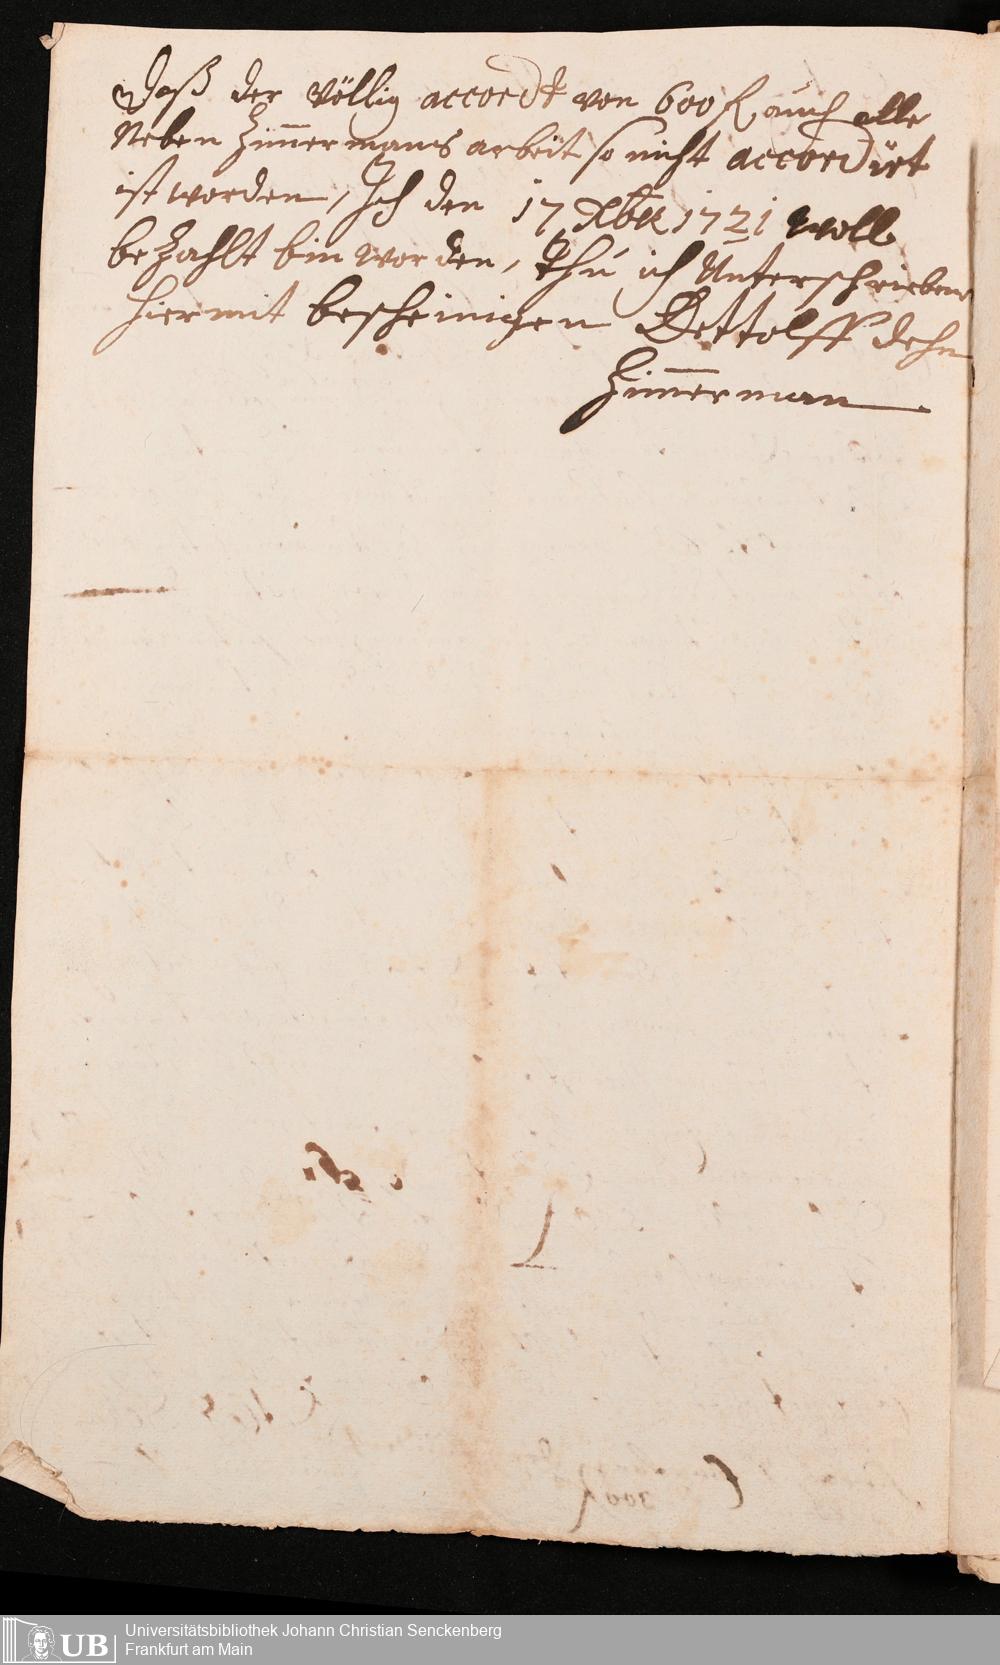 Daß der völlig accordt von 600 fl auch alle
Neben Zim̄ermans arbeit so nicht accordirt
ist worden, Ich den 17 Xbr 1721 woll
bezahlt bin worden, thu ich Unterschrieben
hiermit bescheinigen Dettolff Dehn
Zim̄erman
300 fl
UB
Universitätsbibliothek Johann Christian Senckenberg
Frankfurt am Main